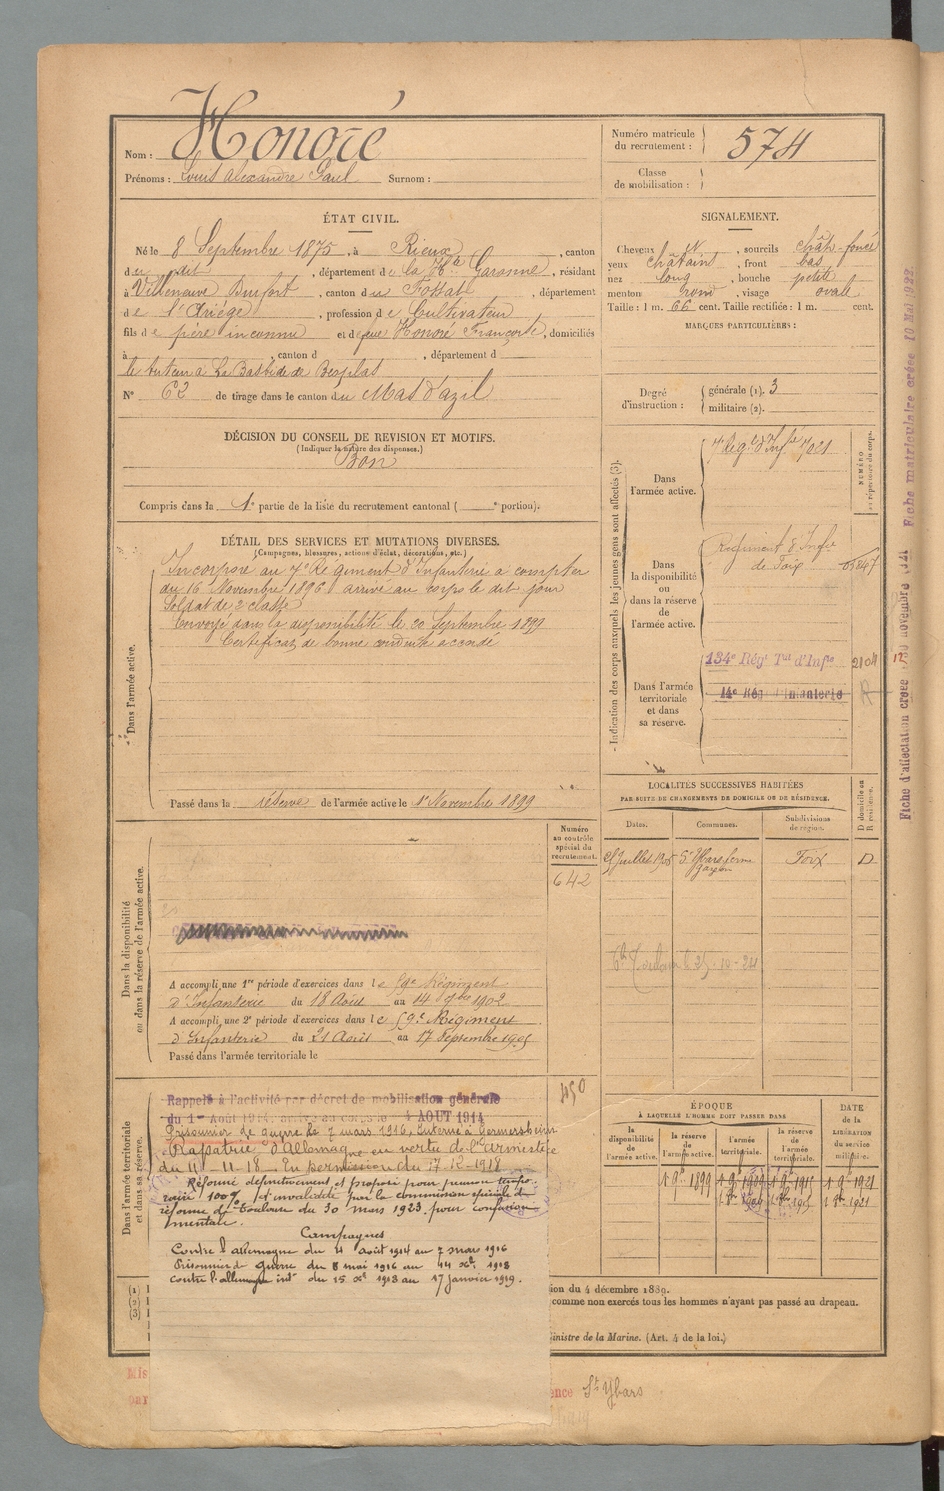 Nom : Honoré
Prénoms : Louis Alexandre Paul Surnom :
Numéro matricule du recrutement : 574
Classe de mobilisation :
ÉTAT CIVIL.
Né le 8 Septembre 1875, à Rieux, canton
du dit, département de la Hte Garonne, résidant
à Villeneuve Durfort, canton du Fossat, département
de l'Ariège, profession de Cultivateur
fils de père inconnu et de feue Honoré Françoise, domiciliés
à , canton d , département d
le tuteur à La Bastide de Besplas
N° 62 de tirage dans le canton du Mas d'azil
SIGNALEMENT.
Cheveux et, sourcils chât-foncé
yeux châtains, front bas
nez long, bouche petite
menton rond, visage ovale
Taille : 1 m. 66 cent. Taille rectifiée : 1 m. cent.
MARQUES PARTICULIÈRES :
Degré d'instruction : générale (1). 3
militaire (2).
DÉCISION DU CONSEIL DE REVISION ET MOTIFS.
(Indiquer la nature des dispenses.)
Bon
Compris dans la 1e partie de la liste du recrutement cantonal ( e portion).
DÉTAIL DES SERVICES ET MUTATIONS DIVERSES.
(Campagnes, blessures, actions d'éclat, décorations, etc.)
Dans l'armée active.
Incorporé au 7e Régiment d'Infanterie a compter
du 16 Novembre 1896 arrivé au corps le dit jour
Soldat de 2e classe
Envoyé dans la disponibilité le 20 Septembre 1899
Certificat de bonne conduite accordé
Passé dans la réserve de l'armée active le 1er Novembre 1899
Indication des corps auxquels les jeunes gens sont affectés (3).
NUMÉRO au répertoire du corps.
Dans l'armée active.
7e Régt d'Infie 7021
Dans la disponibilité ou dans la réserve de l'armée active.
Régiment d'Infie
de Foix
Dans l'armée territoriale et dans sa réserve.
134e Régt Tal d'Infie 2104
14e Rég d'Infanterie R
LOCALITÉS SUCCESSIVES HABITÉES
PAR SUITE DE CHANGEMENTS DE DOMICILE OU DE RÉSIDENCE.
Dates. Communes. Subdivisions de région. D domicile ou R résidence.
Juillet 1905 St Ybars ferme Foix D
Toulouse le 25-10-24
Numéro au contrôle spécial du recrutement.
642
Dans la disponibilité ou dans la réserve de l'armée active.
A accompli une 1re période d'exercices dans le 59e Régiment
d'Infanterie du 18 Août au 14 7bre 1902
A accompli une 2e période d'exercices dans le 59e Régiment
d'Infanterie du 21 Août au 17 Septembre 1905
Passé dans l'armée territoriale le
Dans l'armée territoriale et dans sa réserve.
450
Rappelé à l'activité par décret de mobilisation générale
du 1er Août 1914, arrivé au corps le 4 AOUT 1914
Prisonnier de guerre le 7 mars 1916, interné à Germersheim
Rapatrié d'Allemagne en vertu de l'armistice
du 11-11-18. En permission du 17-12-1918
Réformé définitivement et proposé pour pension tempo-
raire 100% et invalidité par la commission spéciale de
réforme de Toulouse du 30 mars 1923 pour confusion
mentale.
Campagnes
Contre l'allemagne du 4 août 1914 au 7 mars 1916
Prisonnier de guerre du 8 mai 1916 au 14 Xbre 1918
contre l'allemagne intr du 15 Xbre 1918 au 17 janvier 1919.
ÉPOQUE
À LAQUELLE L'HOMME DOIT PASSER DANS
la disponibilité de l'armée active. la réserve de l'armée active. l'armée territoriale. la réserve de l'armée territoriale.
DATE de la LIBÉRATION du service militaire.
1 9bre 1899 1 9bre 1909 1 9bre 1915 1 9bre 1921
1 8bre 1909 1 8bre 1915 1 8bre 1921
(1)
(2)
(3)
ion du 4 décembre 1889.
comme non exercés tous les hommes n'ayant pas passé au drapeau.
inistre de la Marine. (Art. 4 de la loi.)
Mis
par
ence St Ybars
Fiche matriculaire créée 10 Mai 1922.
Fiche d'affectation créée novembre